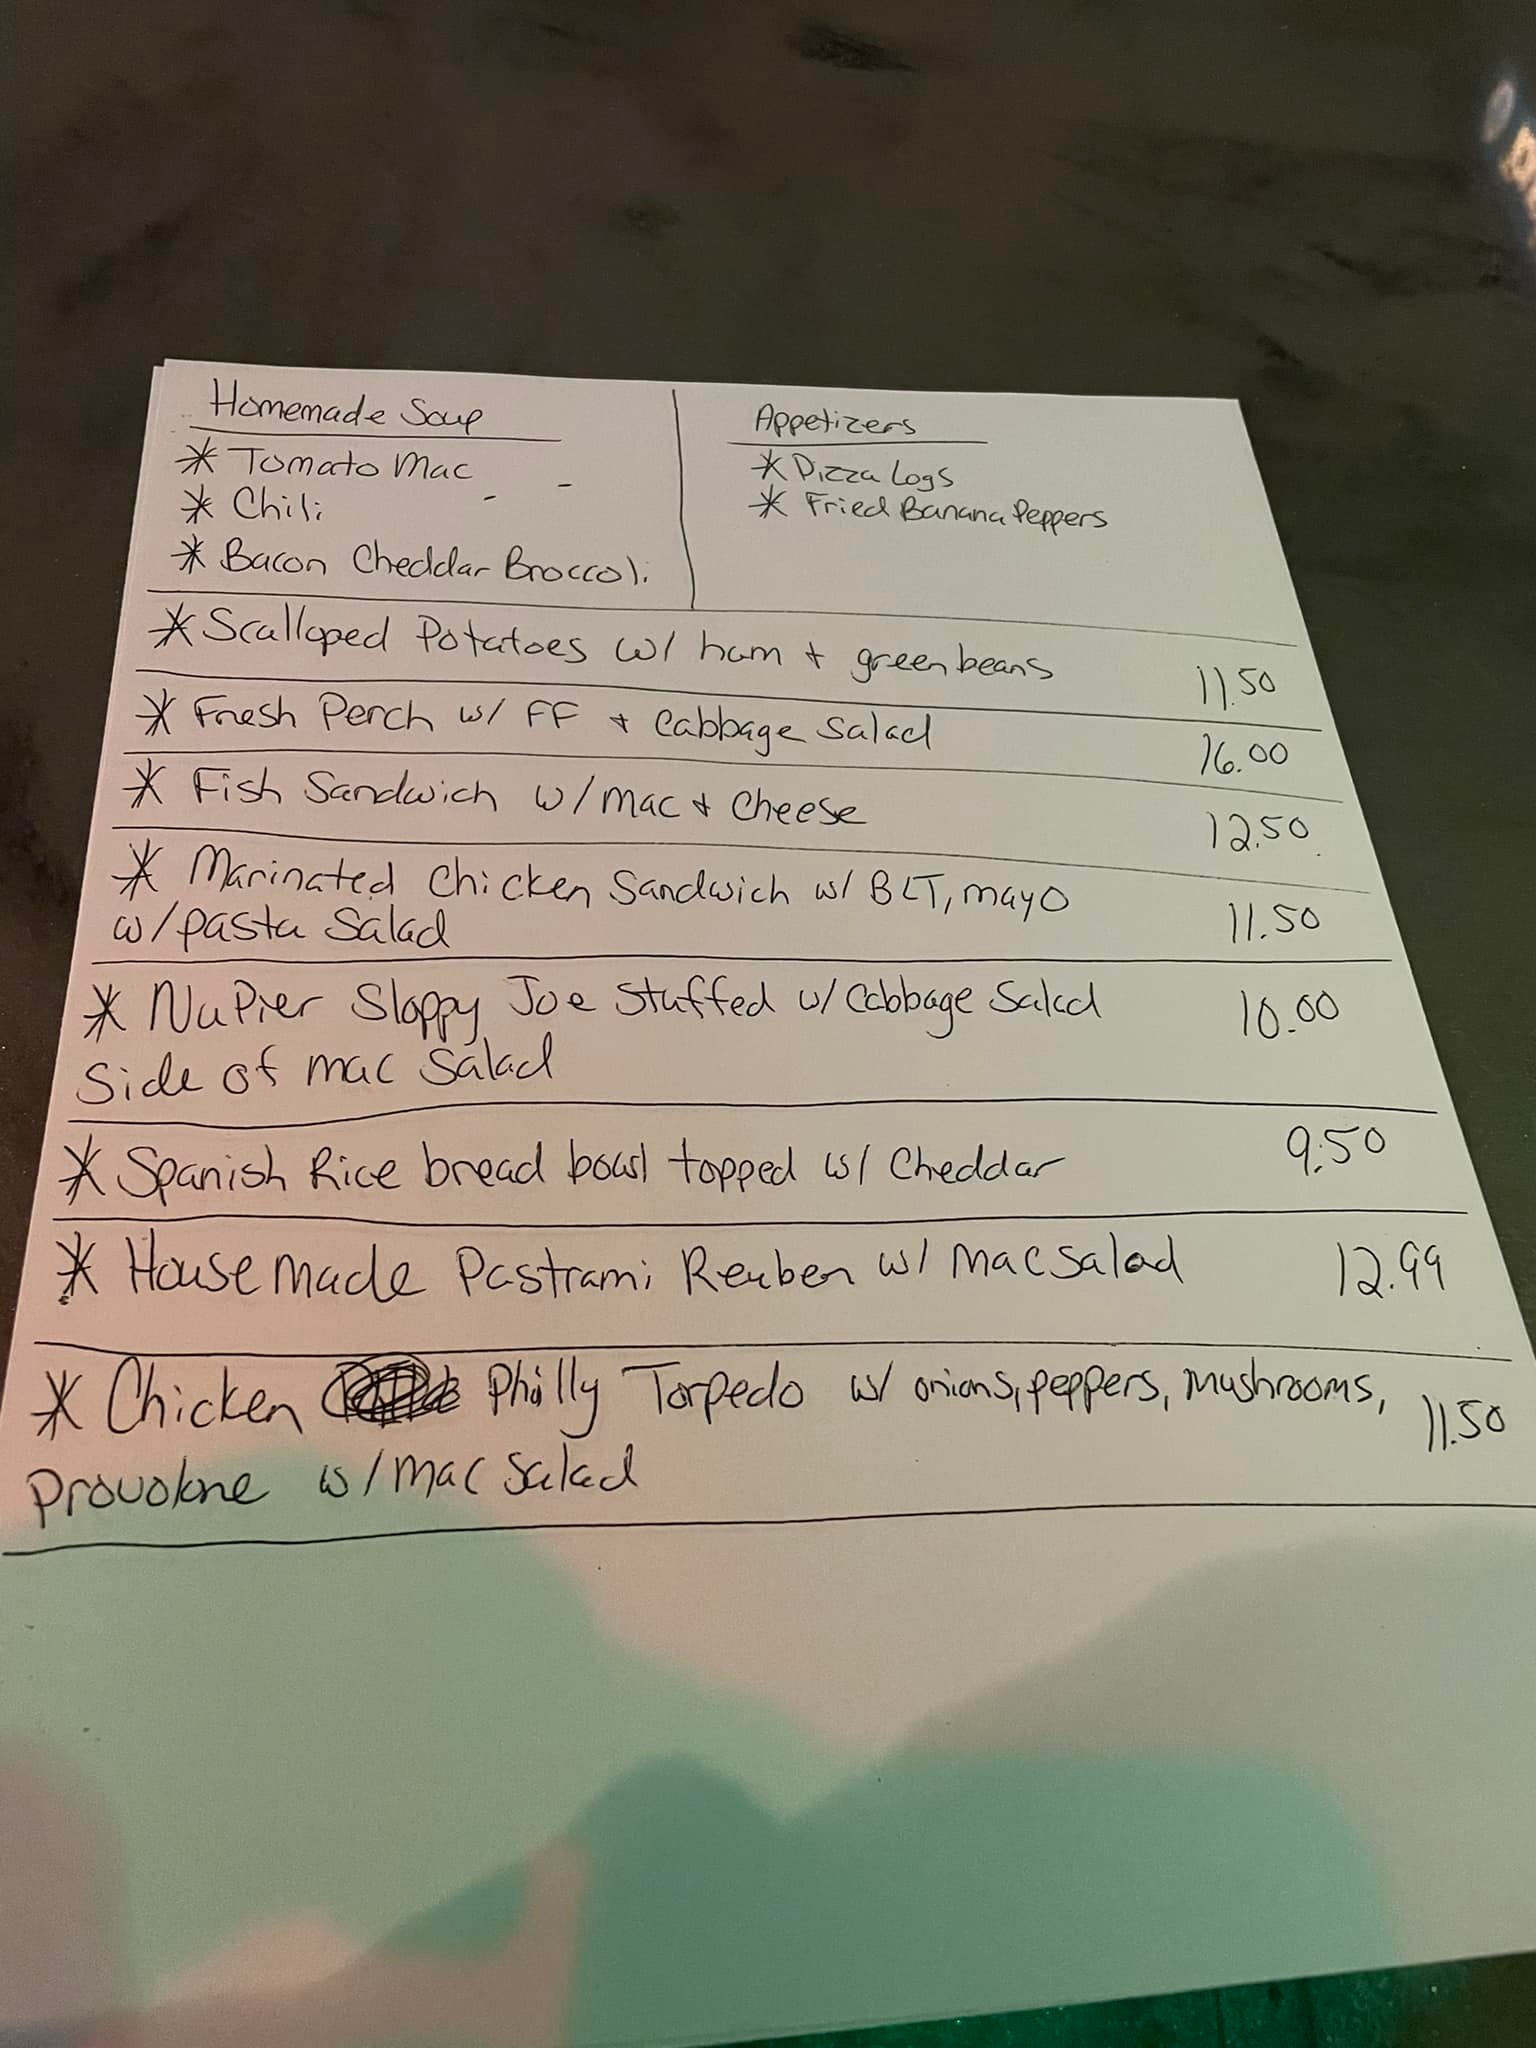 Homemade Soup
* Tomato Mac
* Chili
* Bacon Cheddar Broccoli
Appetizers
* Pizza Logs
* Fried Banana Peppers
* Scalloped Potatoes w/ ham + green beans 11.50
* Fresh Perch w/ FF + Cabbage Salad 16.00
* Fish Sandwich w/ mac + Cheese 12.50
* Marinated Chicken Sandwich w/ BLT, mayo
w/ pasta Salad 11.50
* NuPier Sloppy Joe Stuffed w/ Cabbage Salad 10.00
Side of mac Salad
* Spanish Rice bread bowl topped w/ Cheddar 9.50
* House made Pastrami Reuben w/ Mac Salad 12.99
* Chicken Philly Torpedo w/ onions, peppers, Mushrooms, 11.50
Provolone w/ Mac Salad